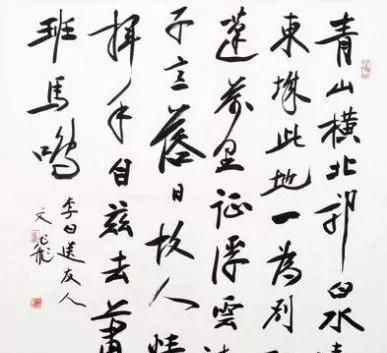 青山橫北郭白水
東城此地一為別
蓬萬里征浮雲
子意落日故人情
揮手自茲去蕭
班馬鳴
李白送友人
文